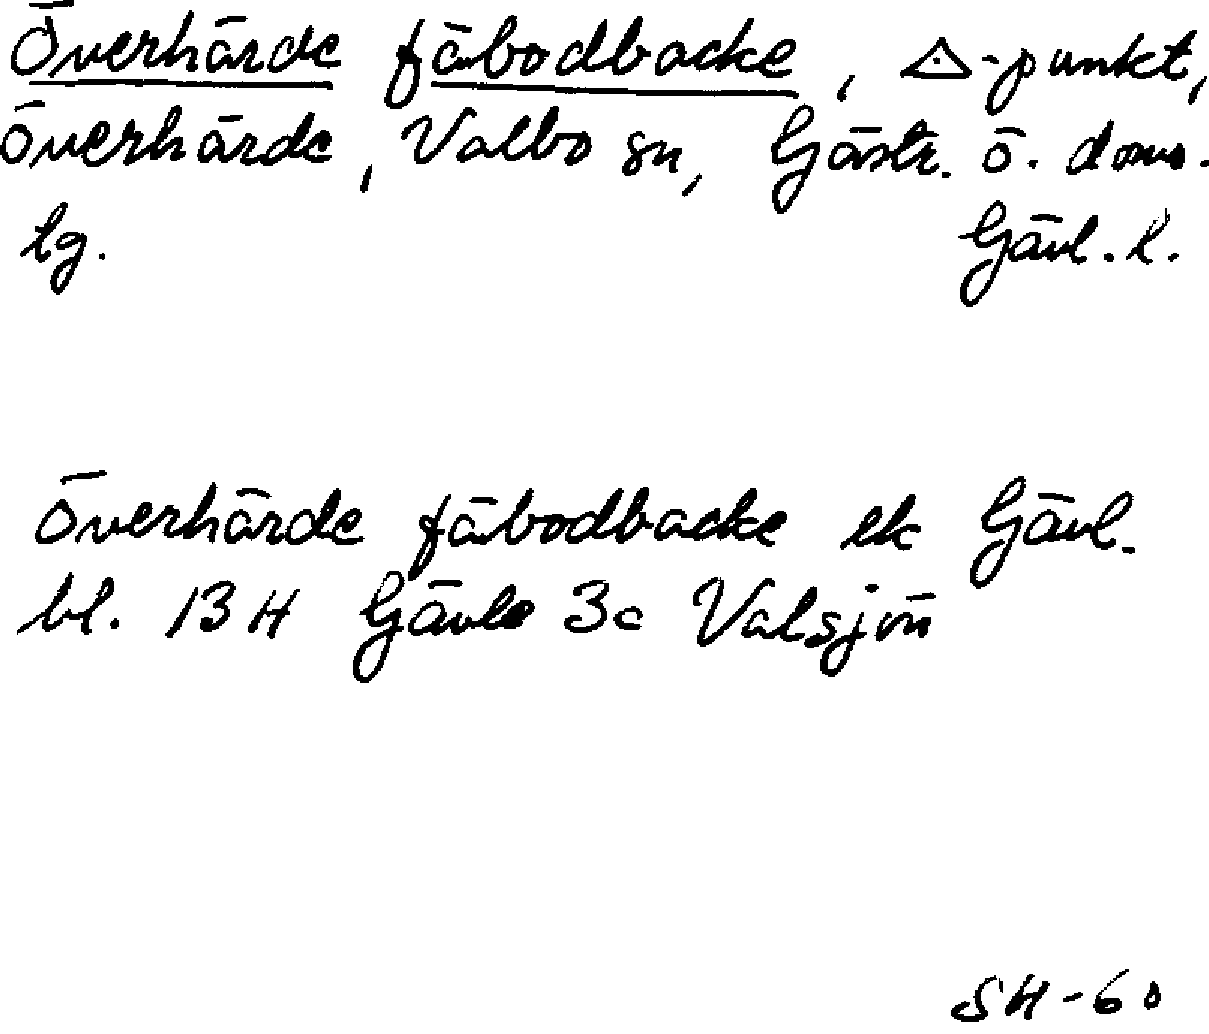 Överhärde fäbodbacke, △-punkt,
Överhärde, Valbo sn, Gästr. ö. doms.
lg. Gävl. l.
Överhärde fäbodbacke ek Gävl.
bl. 13 H Gävle 3c Valsjön
SH-60